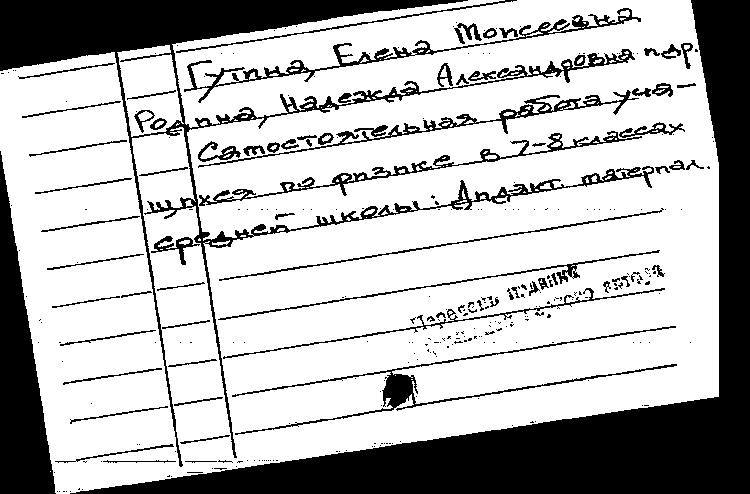 Гутина, Елена Моисеевна
Родина, Надежда Александровна и др.
Самостоятельная работа уча-
щихся по физике в 7-8 классах
средней школы: Дидакт. материал.
Перевесь
другого автора